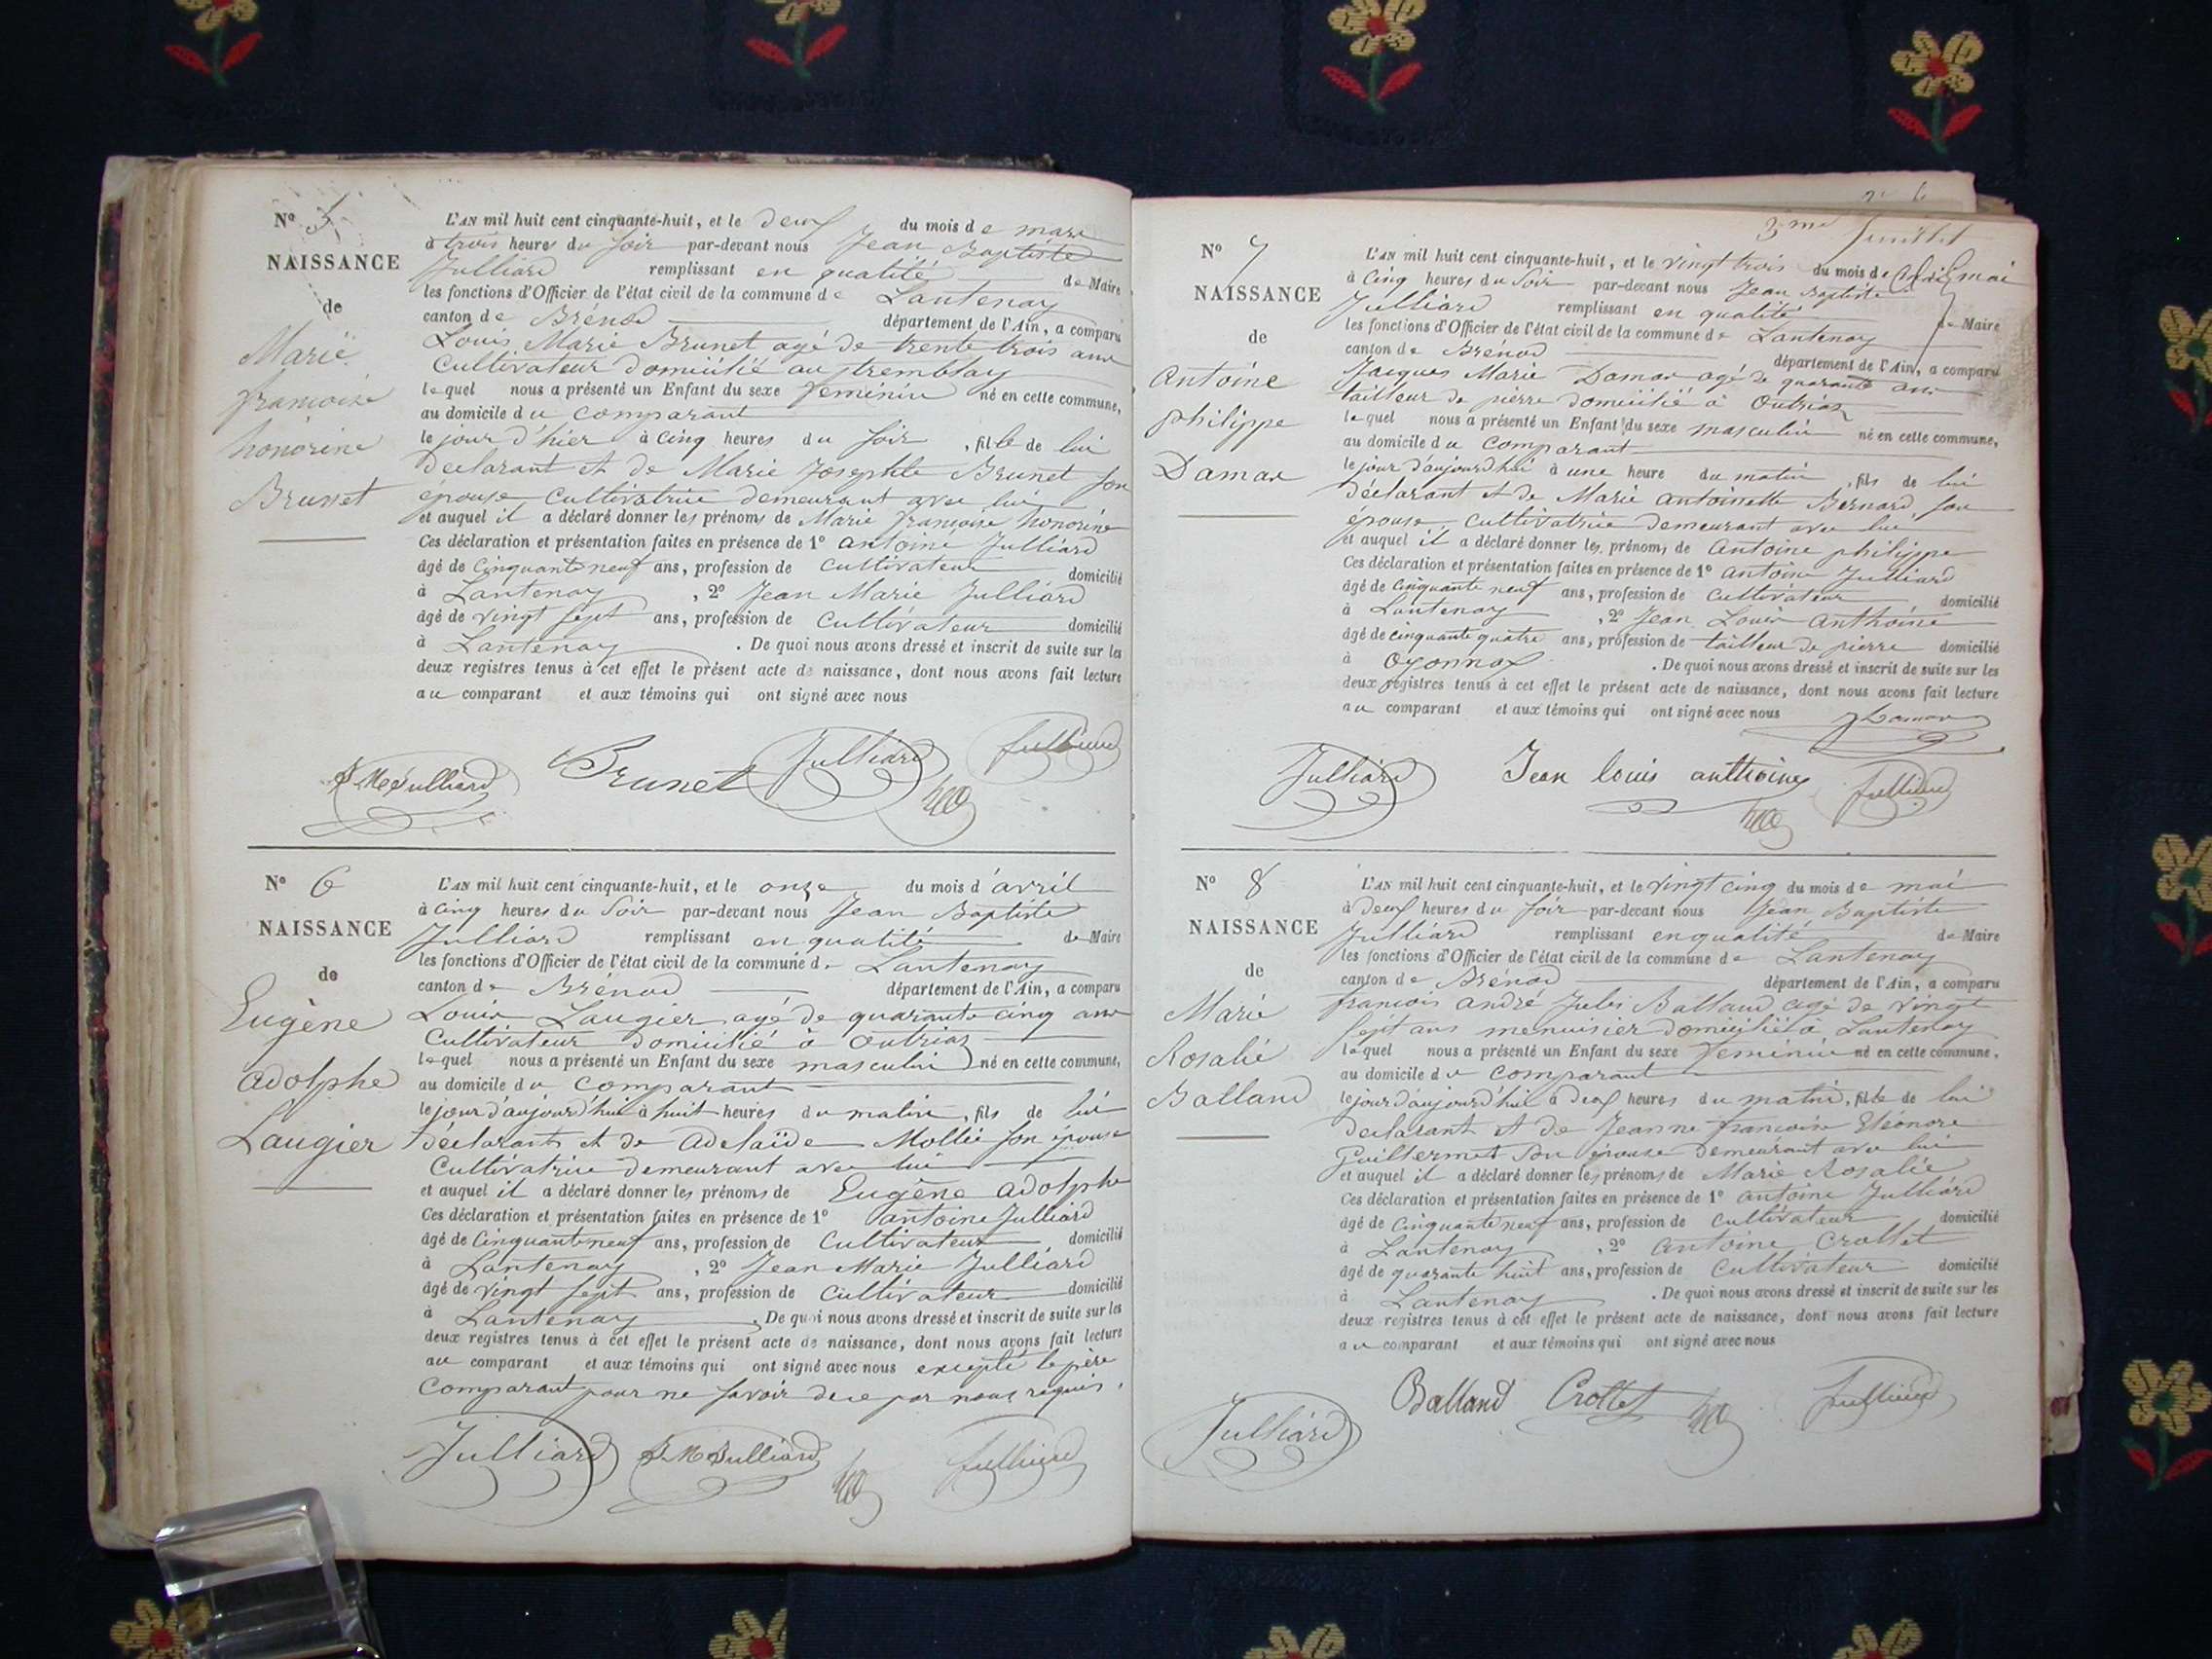 Nº 5
NAISSANCE
de
Marie
françoise
honorine
Brunet
L'AN mil huit cent cinquante-huit, et le deux du mois de mars
à trois heures du soir par-devant nous Jean Baptiste
Julliard remplissant en qualité de Maire
les fonctions d'Officier de l'état civil de la commune de Lantenay
canton de Brénod département de l'Ain, a comparu
Louis Marie Brunet agé de trente trois ans
Cultivateur domicilié au tremblay
lequel nous a présenté un Enfant du sexe feminin né en cette commune,
au domicile du comparant
le jour d'hier à cinq heures du soir, fille de lui
Déclarant et de Marie Josephte Brunet son
épouse cultivatrice demeurant avec lui
et auquel il a déclaré donner les prénoms de Marie françoise honorine
Ces déclaration et présentation faites en présence de 1º antoine Julliard
âgé de Cinquante neuf ans, profession de cultivateur domicilié
à Lantenay, 2º Jean Marie Julliard
âgé de vingt sept ans, profession de Cultivateur domicilié
à Lantenay. De quoi nous avons dressé et inscrit de suite sur les
deux registres tenus à cet effet le présent acte de naissance, dont nous avons fait lecture
au comparant et aux témoins qui ont signé avec nous
J Me Julliard Brunet Julliard Julliard
Nº 6
NAISSANCE
de
Eugène
adolphe
Laugier
L'AN mil huit cent cinquante-huit, et le onze du mois d'avril
à cinq heures du Soir par-devant nous Jean Baptiste
Julliard remplissant en qualité de Maire
les fonctions d'Officier de l'état civil de la commune de Lantenay
canton de Brénod département de l'Ain, a comparu
Louis Laugier agé de quarante cinq ans
Cultivateur domicilié à Outriaz
lequel nous a présenté un Enfant du sexe masculin né en cette commune,
au domicile du comparant
le jour d'aujourd'hui à huit heures du matin, fils de lui
déclarant et de adelaïde Mollie son épouse
Cultivatrice demeurant avec lui
et auquel il a déclaré donner les prénoms de Eugène adolphe
Ces déclaration et présentation faites en présence de 1º antoine Julliard
âgé de Cinquante neuf ans, profession de Cultivateur domicilié
à Lantenay, 2º Jean Marie Julliard
âgé de vingt sept ans, profession de Cultivateur domicilié
à Lantenay. De quoi nous avons dressé et inscrit de suite sur les
deux registres tenus à cet effet le présent acte de naissance, dont nous avons fait lecture
au comparant et aux témoins qui ont signé avec nous excepté le père
Comparant pour ne savoir de ce par nous requis.
Julliard J M Julliard Julliard
3me feuillet
Nº 7
NAISSANCE
de
Antoine
philippe
Damas
L'AN mil huit cent cinquante-huit, et le vingt trois du mois de mai
à Cinq heures du Soir par-devant nous Jean Baptiste
Julliard remplissant en qualité de Maire
les fonctions d'Officier de l'état civil de la commune de Lantenay
canton de Brénod département de l'Ain, a comparu
Jacques Marie Damas agé de quarante ans
tailleur de pierre domicilié à Outriaz
lequel nous a présenté un Enfant du sexe masculin né en cette commune,
au domicile du comparant
le jour d'aujourd'hui à une heure du matin, fils de lui
Déclarant et de Marie antoinette Bernard son
épouse cultivatrice demeurant avec lui
et auquel il a déclaré donner les prénoms de Antoine philippe
Ces déclaration et présentation faites en présence de 1º antoine Julliard
âgé de Cinquante neuf ans, profession de Cultivateur domicilié
à Lantenay, 2º Jean Louis anthoine
âgé de cinquante quatre ans, profession de tailleur de pierre domicilié
à Oyonnax. De quoi nous avons dressé et inscrit de suite sur les
deux registres tenus à cet effet le présent acte de naissance, dont nous avons fait lecture
au comparant et aux témoins qui ont signé avec nous J Damas
Julliard Jean louis anthoine Julliard
Nº 8
NAISSANCE
de
Marie
Rosalie
Balland
L'AN mil huit cent cinquante-huit, et le vingt cinq du mois de mai
à Deux heures du soir par-devant nous Jean Baptiste
Julliard remplissant en qualité de Maire
les fonctions d'Officier de l'état civil de la commune de Lantenay
canton de Brénod département de l'Ain, a comparu
françois andré Jules Balland agé de vingt
sept ans menuisier domicilié à Lantenay
lequel nous a présenté un Enfant du sexe feminin né en cette commune,
au domicile du comparant
le jour d'aujourd'hui à deux heures du matin, fille de lui
declarant et de Jeanne françoise Eléonore
Guillermet son épouse demeurant avec lui
et auquel il a déclaré donner les prénoms de Marie Rosalie
Ces déclaration et présentation faites en présence de 1º antoine Julliard
âgé de Cinquante neuf ans, profession de cultivateur domicilié
à Lantenay, 2º antoine Crollet
âgé de quarante huit ans, profession de Cultivateur domicilié
à Lantenay. De quoi nous avons dressé et inscrit de suite sur les
deux registres tenus à cet effet le présent acte de naissance, dont nous avons fait lecture
au comparant et aux témoins qui ont signé avec nous
Julliard Balland Crollet Julliard